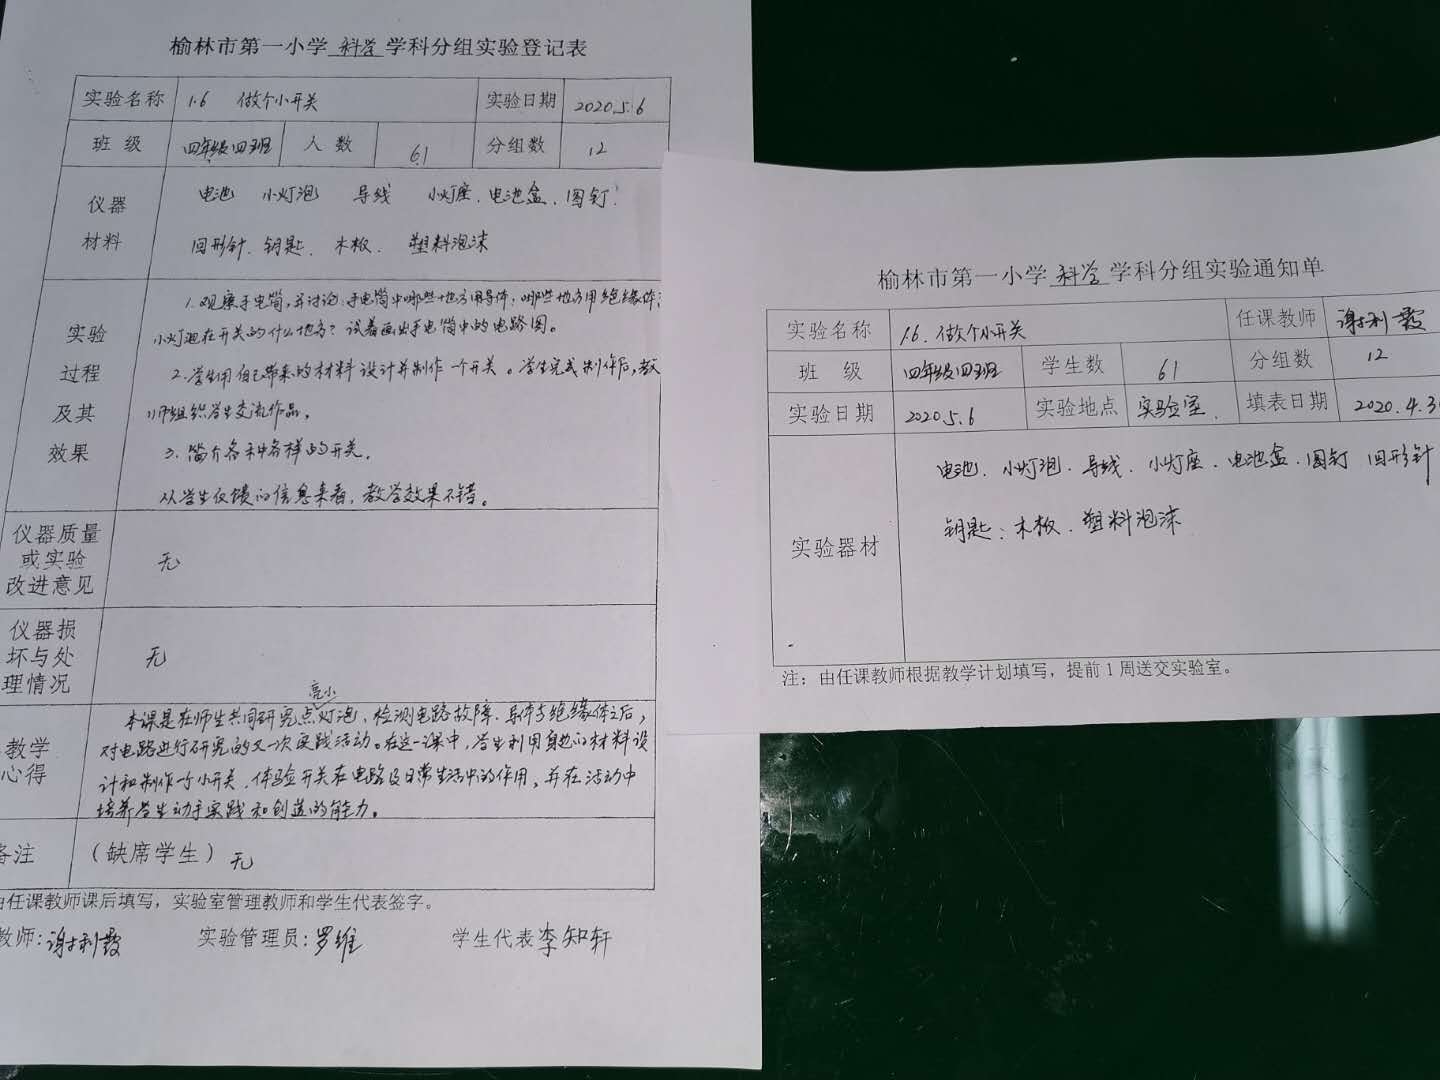 榆林市第一小学 科学 学科分组实验登记表
实验名称 1.6 做个小开关 实验日期 2020.5.6
班 级 四年级四班 人 数 61 分组数 12
仪器材料
电池 小灯泡 导线 小灯座、电池盒、图钉、
回形针、钥匙、木板、塑料泡沫
实验过程及其效果
1.观察手电筒,并讨论:手电筒中哪些地方用导体;哪些地方用绝缘体;
小灯泡在开关的什么地方?试着画出手电筒中的电路图。
2.学生用自己带来的材料设计并制作一个开关。学生完成制作后,教
师组织学生交流作品。
3.简介各种各样的开关。
从学生反馈的信息来看,教学效果不错。
仪器质量或实验改进意见
无
仪器损坏与处理情况
无
教学心得
本课是在师生共同研究点亮小灯泡、检测电路故障、导体与绝缘体之后,
对电路进行研究的又一次实践活动。在这一课中,学生利用身边的材料设
计和制作一个小开关,体验开关在电路及日常生活中的作用,并在活动中
培养学生动手实践和创造的能力。
备注 (缺席学生) 无
由任课教师课后填写,实验室管理教师和学生代表签字。
教师:谢利霞 实验管理员:罗维 学生代表 李知轩
榆林市第一小学 科学 学科分组实验通知单
实验名称 1.6.做个小开关 任课教师 谢利霞
班 级 四年级四班 学生数 61 分组数 12
实验日期 2020.5.6 实验地点 实验室. 填表日期 2020.4.3
实验器材
电池、小灯泡、导线、小灯座、电池盒、图钉 回形针
钥匙、木板、塑料泡沫
注:由任课教师根据教学计划填写,提前1周送交实验室。